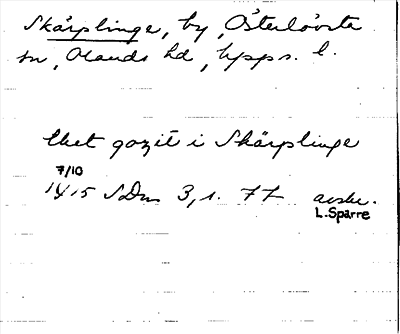 Skärplinge, by, Österlövsta
sn, Olands hd, Upps. l.
thet gozit i Skärplinge
7/10
1415 SDns 3, s. 77 avskr.
L. Sparre